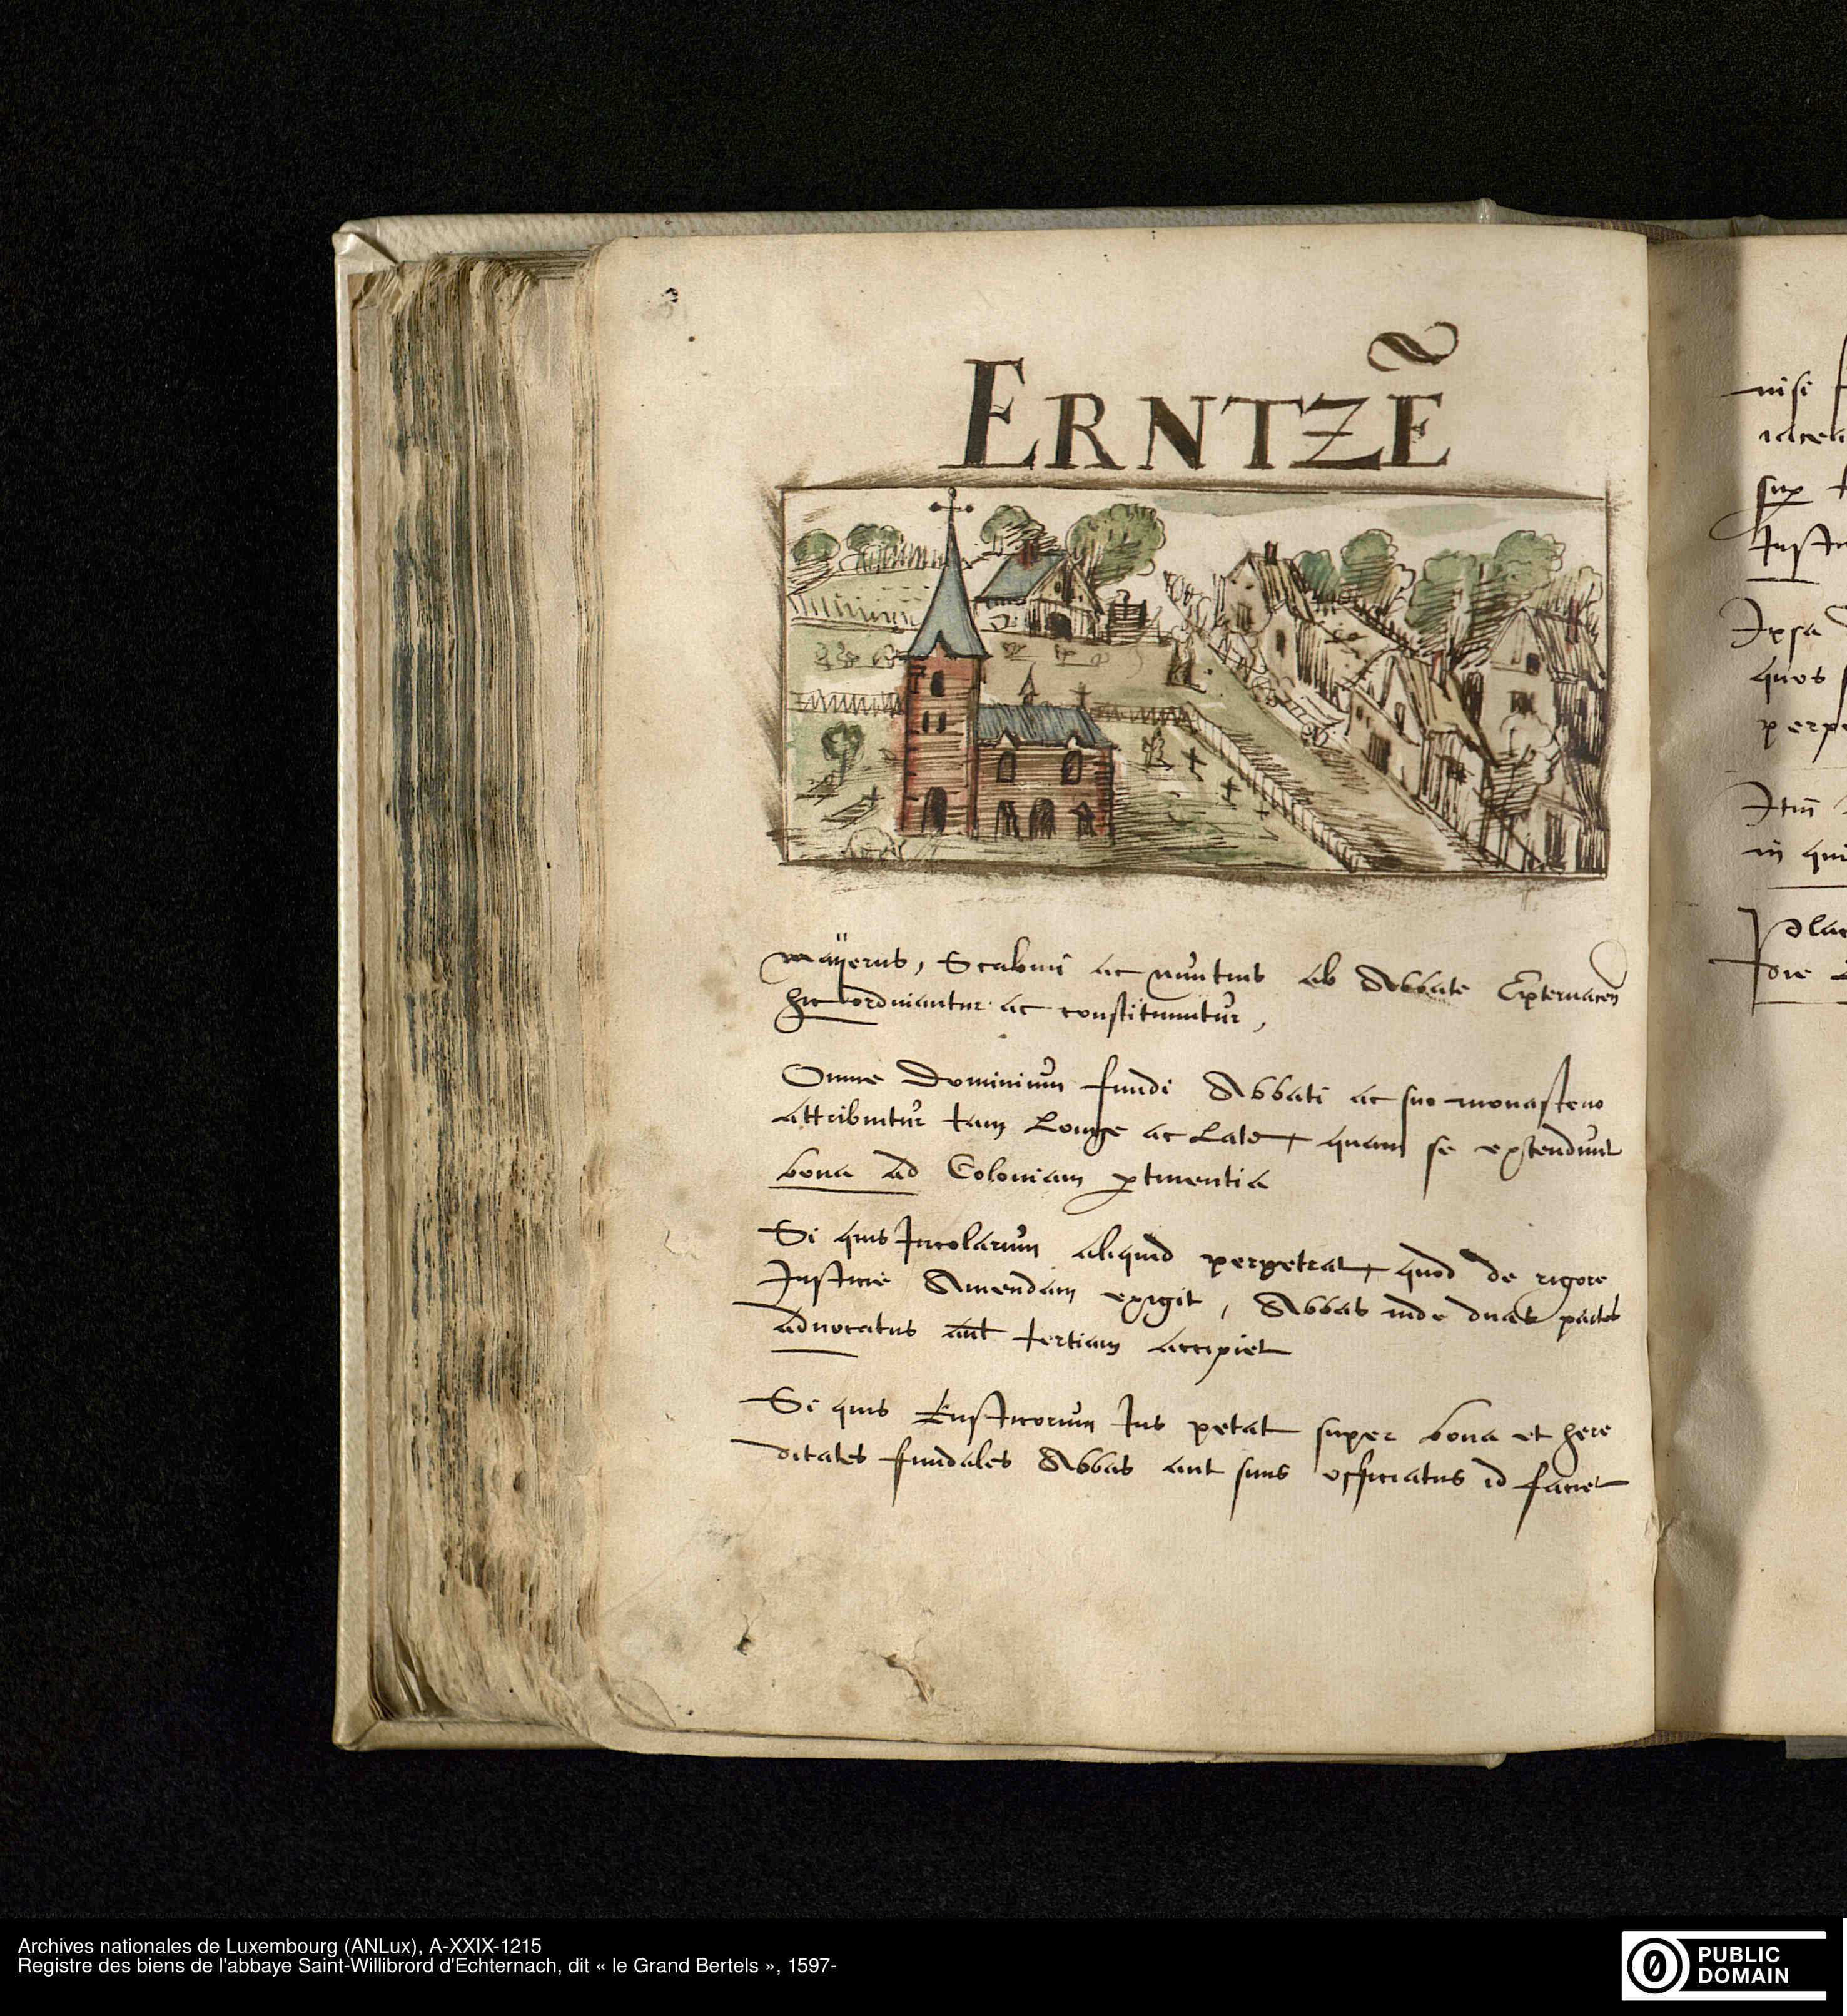 ERNTZẼ
Mayerus, Scabini ac nuntius ab Abbate Epternacen̄
hic ordinantur ac constituuntur,
Omne Dominium fundi Abbati ac suo monasterio
attribuitur tam Longe ac Late quam se extendunt
bona ad Coloniam ptinentia
Si quis Incolarum aliquid perpetrat quod de rigore
Justicie Amendam exigit, Abbas inde duas partes
advocatus aut̄ tertiam accipiet
Si quis Rusticorum Jus petat super bona et here
ditates fundales Abbas aut suus officiatus id faciet
nisi
sup
Ipsa
quos
perpe
Itm̄
in qui
Archives nationales de Luxembourg (ANLux), A-XXIX-1215
Registre des biens de l'abbaye Saint-Willibrord d'Echternach, dit « le Grand Bertels », 1597-
PUBLIC
DOMAIN